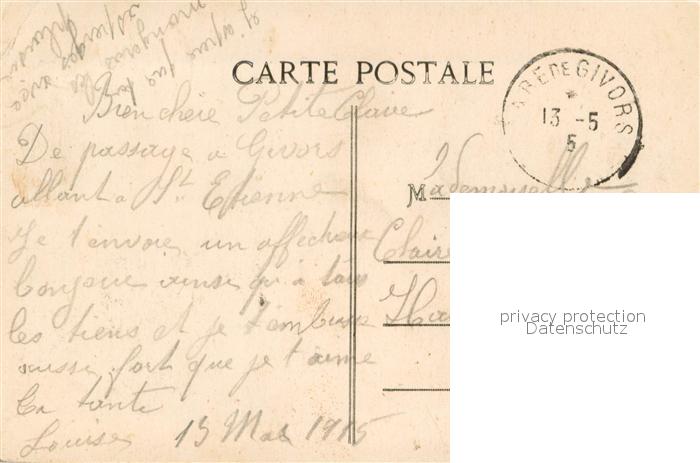 CARTE POSTALE
GARE DE GIVORS
13 -5
5
Bien chère Petite Claire
De passage a Givors
allant a St. Etienne
Je t'envoie un affectueux
bonjour ainsi qu'a tous
les tiens et je t'embrasse
aussi fort que je t'aime
Ta tante
Louise
13 Mai 1915
Mademoiselle
Claire
privacy protection
Datenschutz